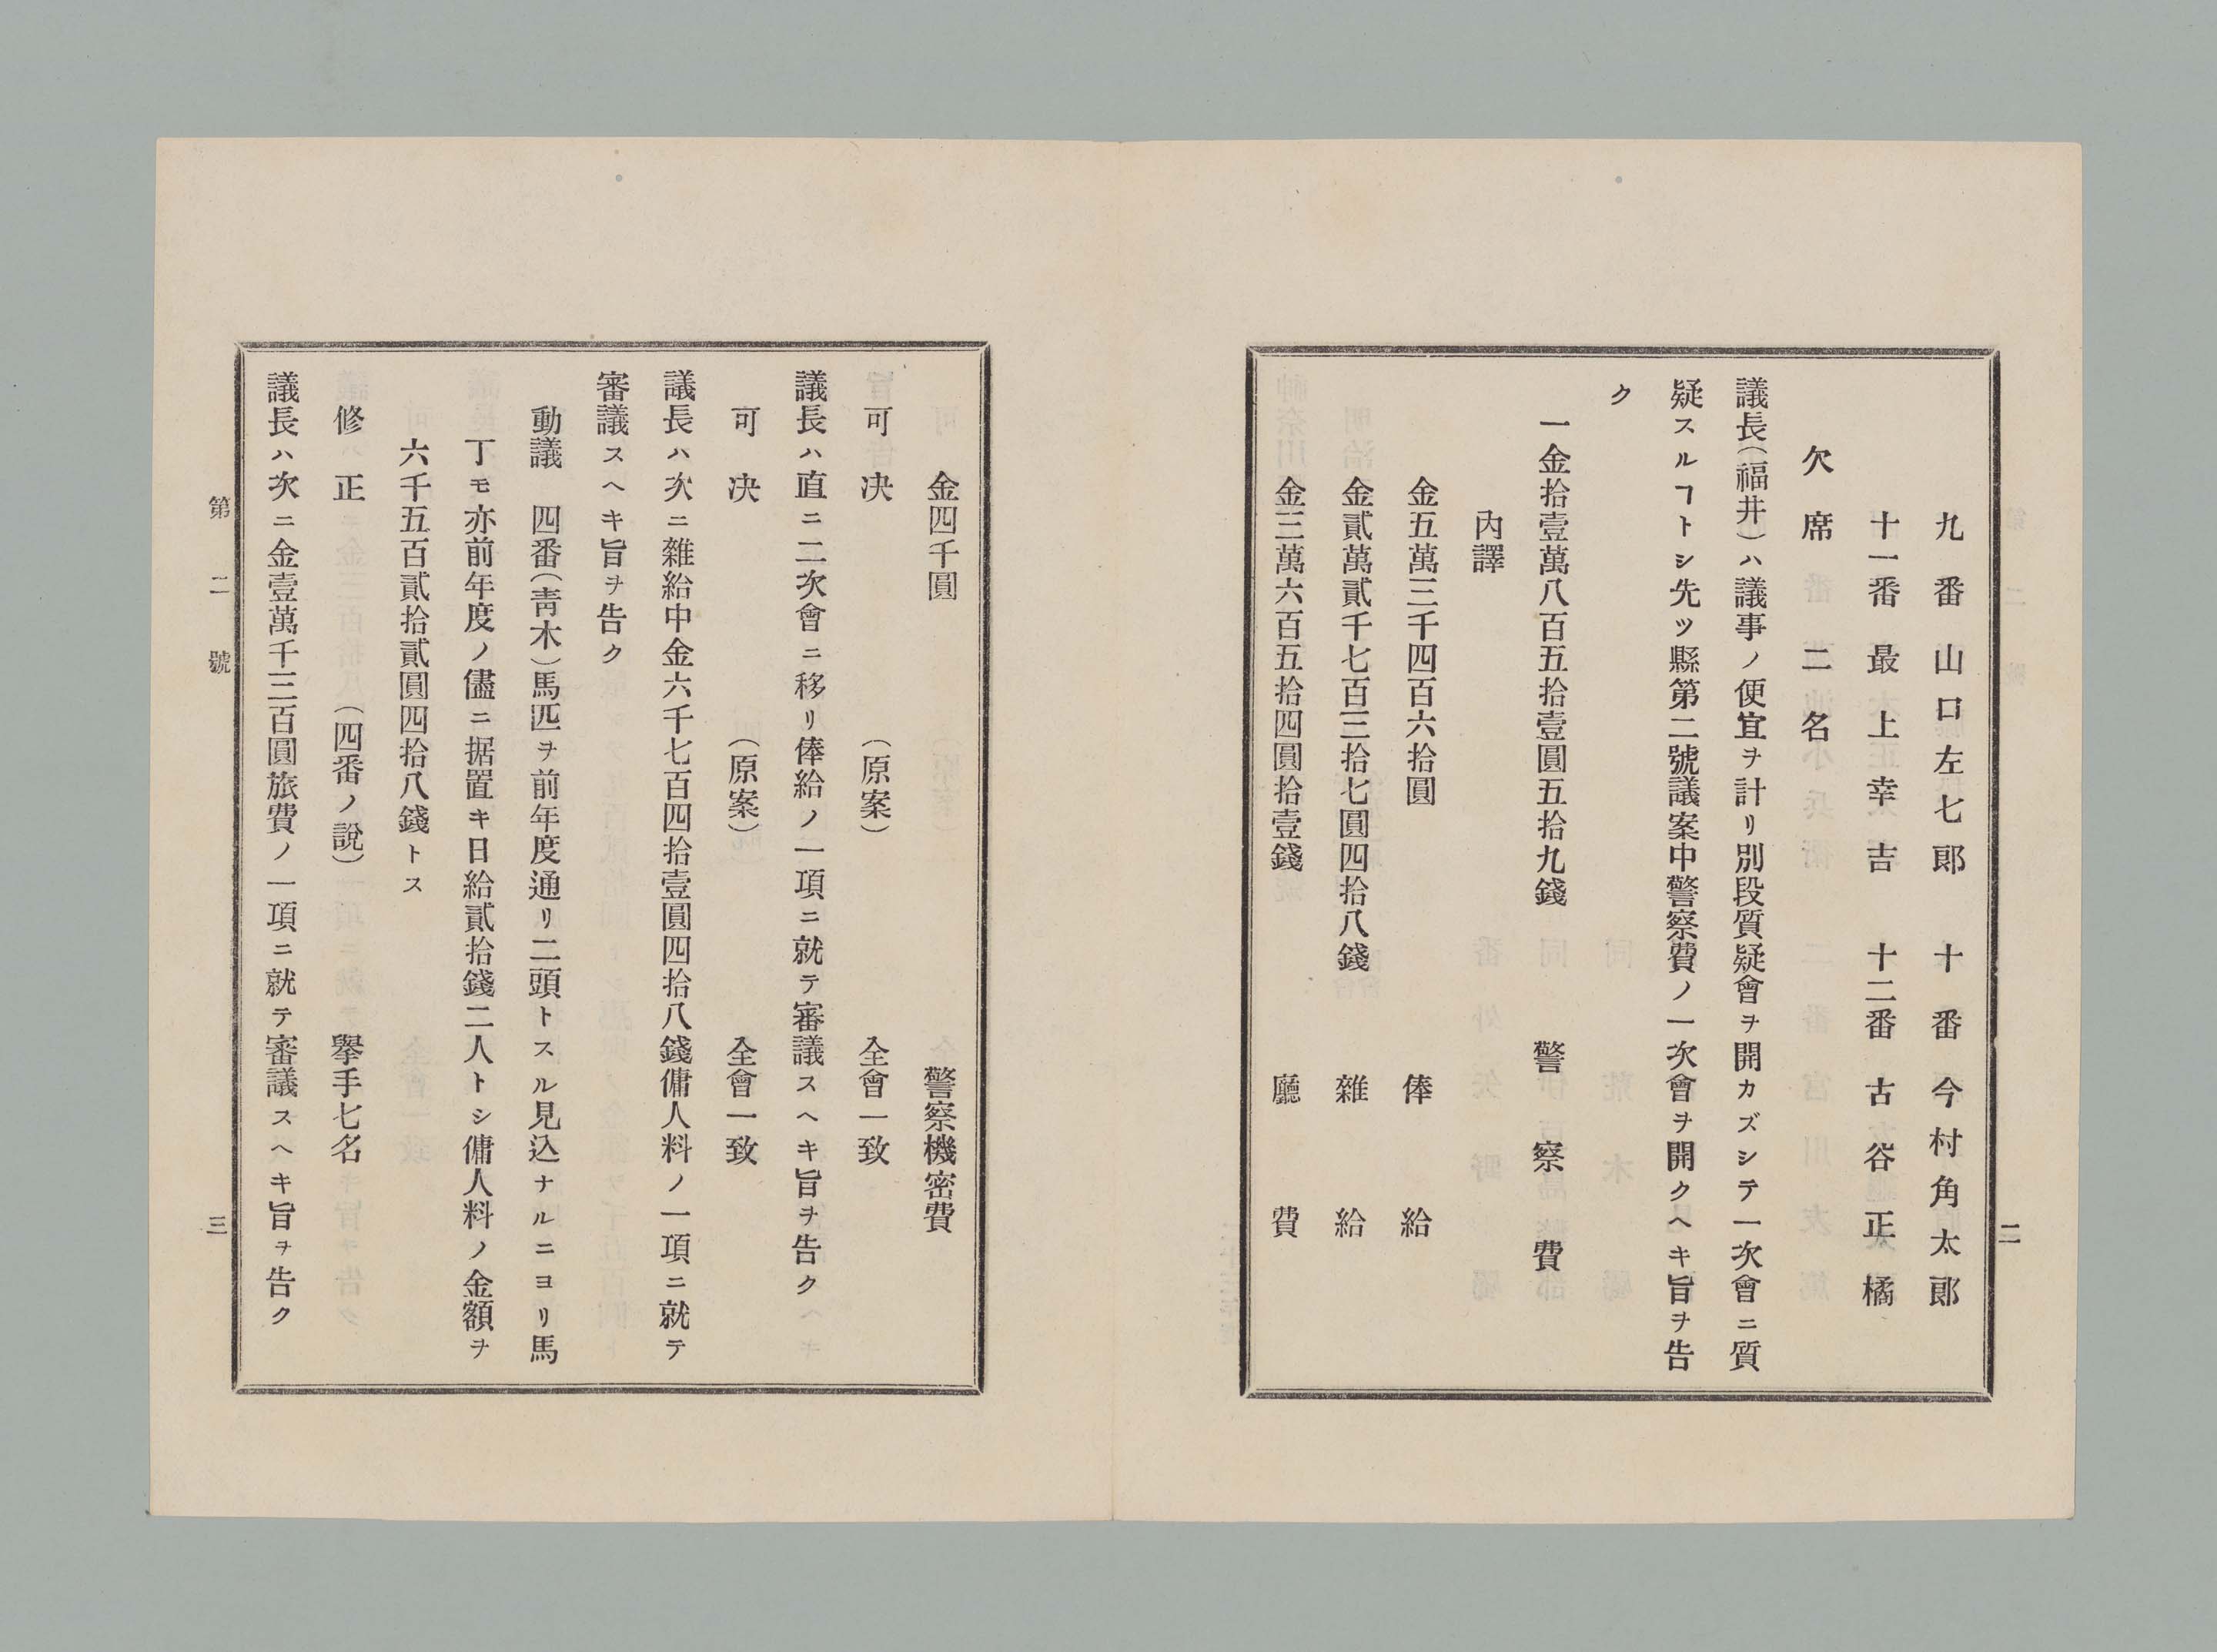 二
九番 山口左七郎 十番 今村角太郎
十一番 最上幸吉 十二番 古谷正橘
欠席 二名
議長(福井)ハ議事ノ便宜ヲ計リ別段質疑會ヲ開カズシテ一次會ニ質
疑スルヿトシ先ツ縣第二號議案中警察費ノ一次會ヲ開クヘキ旨ヲ告
ク
一金拾壹萬八百五拾壹圓五拾九錢 警察費
內譯
金五萬三千四百六拾圓 俸給
金貳萬貳千七百三拾七圓四拾八錢 雜給
金三萬六百五拾四圓拾壹錢 廳費
金四千圓 警察機密費
可決 (原案) 全會一致
議長ハ直ニ二次會ニ移リ俸給ノ一項ニ就テ審議スヘキ旨ヲ告ク
可決 (原案) 全會一致
議長ハ次ニ雜給中金六千七百四拾壹圓四拾八錢傭人料ノ一項ニ就テ
審議スヘキ旨ヲ告ク
動議 四番(靑木)馬匹ヲ前年度通リ二頭トスル見込ナルニヨリ馬
丁モ亦前年度ノ儘ニ据置キ日給貳拾錢二人トシ傭人料ノ金額ヲ
六千五百貳拾貳圓四拾八錢トス
修正 (四番ノ說) 擧手七名
議長ハ次ニ金壹萬千三百圓旅費ノ一項ニ就テ審議スヘキ旨ヲ告ク
第二號 三